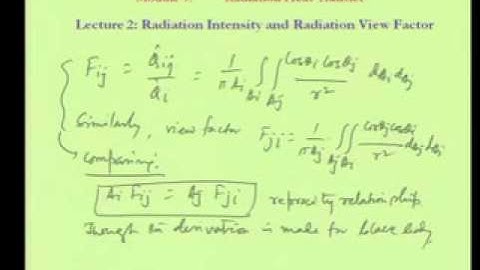 Radiation Heat Transfer
Lecture 2: Radiation Intensity and Radiation View Factor
Fij = Q̇ij / Q̇i = 1/πAi ∫Ai ∫Aj cosθi cosθj / r² dAi dAj
Similarly, view factor Fji = 1/πAj ∫Aj ∫Ai cosθj cosθi / r² dAj dAi
Comparing:
Ai Fij = Aj Fji reprocity relationship
Though the derivation is made for black body